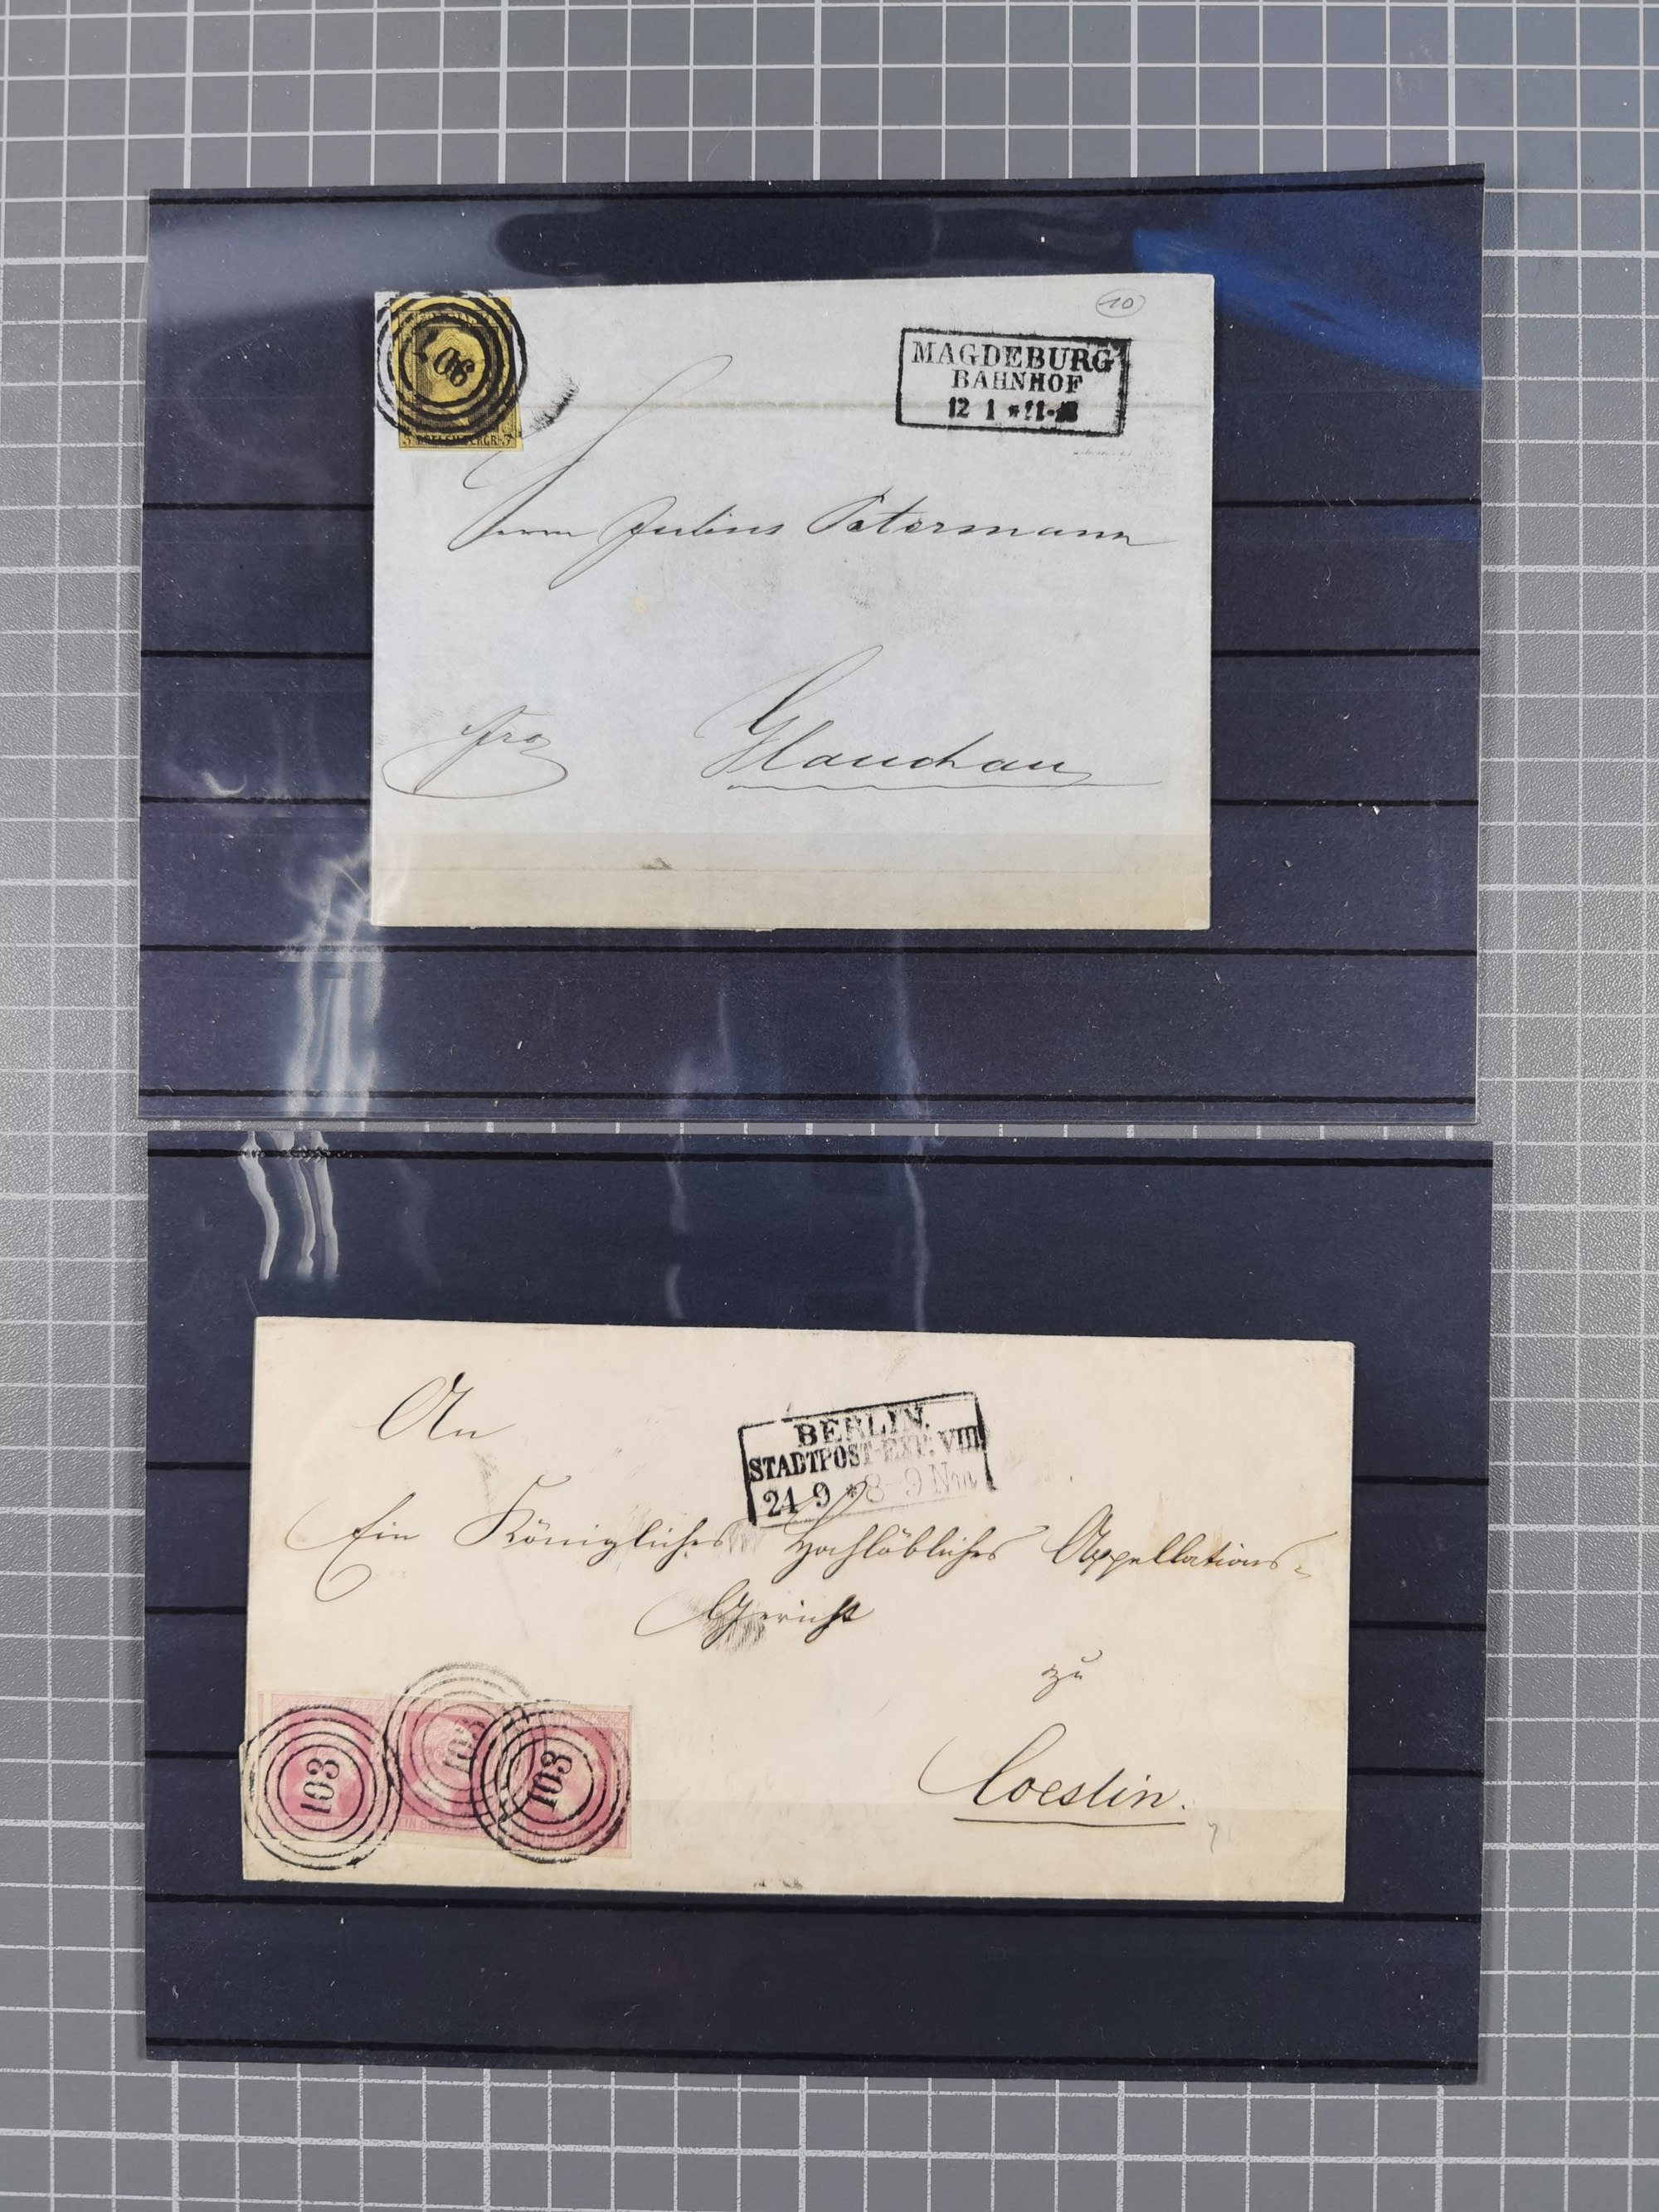 10
MAGDEBURG
BAHNHOF
12 1 * 11-12
Herrn Julius Petermann
fro
Glauchau
An
BERLIN.
STADTPOST-EXP. VIII
24 9 * 8-9 Nm
Ein Königliches Hochlöbliches Appellations-
Gericht
zu
Coeslin.
103
103
103